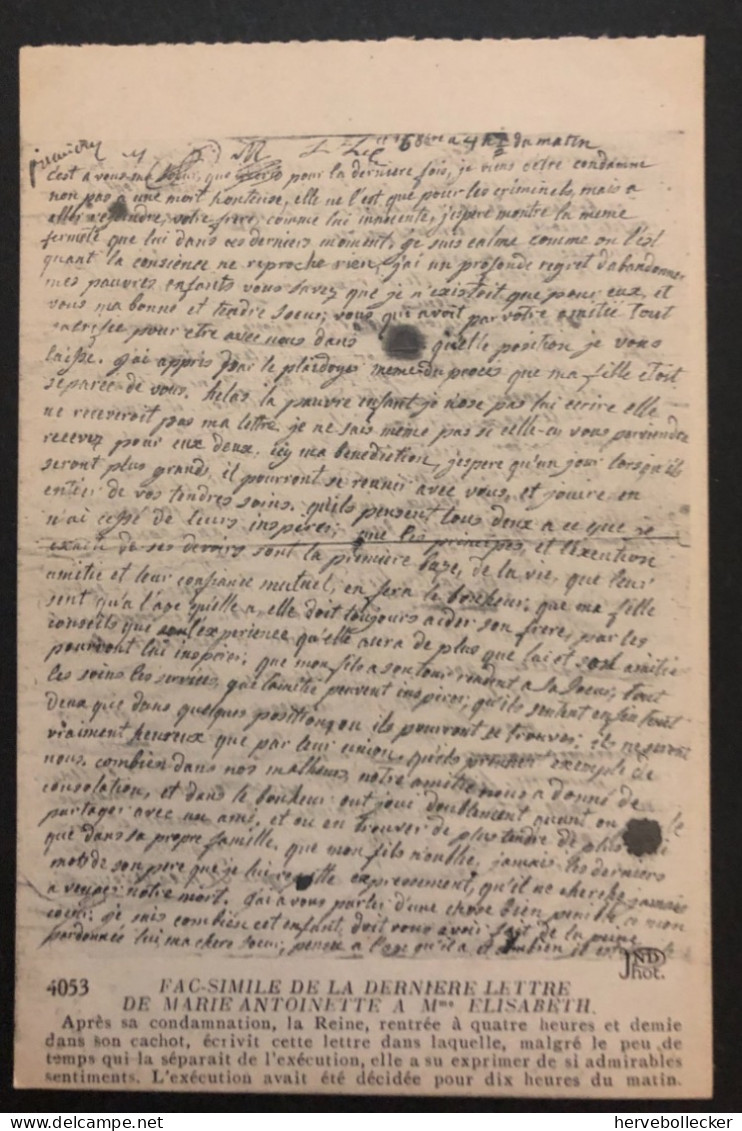 ce 16 8bre a 4h ½ du matin
c'est a vous ma soeur, que j'ecris pour la derniere fois, je viens d'etre condamne
non pas a une mort honteuse, elle ne l'est que pour les criminels, mais a
aller rejoindre votre frere, comme lui innocente, j'espere montre la meme
fermeté que lui dans ces derniers moments, je suis calme comme on l'est
quant la consience ne reproche rien, j'ai un profonde regret d'abandonner
mes pauvres enfants vous savez que je n'existoit que pour eux, et
vous ma bonne et tendre soeur, vous qui avoit par votre amitie tout
sacrifie pour etre avec nous dans quelle position je vous
laisse. j'ai appris par le plaidoyer meme du proces que ma fille etoit
separee de vous. helas la pauvre enfant je n'ose pas lui ecrire elle
ne receveroit pas ma lettre je ne sais meme pas si celle-cy vous parviendra
recevez pour eux deux, icy ma benediction, j'espere qu'un jour lorsqu'ils
seront plus grands, il pourront se reunir avec vous, et jouire en
entier de vos tendres soins. qu'ils pensent tous deux a ce que je
n'ai cessé de leurs inspirer, que les principes, et l'exention
exacte de ses devoirs sont la premiere base, de la vie, que leur
amitie et leur confiance mutuel, en fera le bonheur, que ma fille
sent qu'a l'age qu'elle a, elle doit toujours aider son frere, par les
conseils que l'experience qu'elle aura de plus que lui et son amitie
pourront lui inspirer, que mon fils a son tour rendent a sa soeur, tout
les soins les services, que l'amitié peuvent inspirer, qu'ils sentent enfin tout
deux que dans quelques positions ou ils pourront se trouver, ils ne seront
vraiment heureux que par leur union, qu'ils prennent exemple de
nous, combien dans nos malheurs, notre amitie nous a donné de
consolation, et dans le bonheur ont joui doublement quant on
partager avec un ami, et ou en trouver de plus tendre de plus
que dans sa propre famille, que mon fils n'oublie, jamais les derniers
mots de son pere que je lui repette expressement, qu'il ne cherche jamais
a venger notre mort. j'ai a vous parler d'une chose bien penible a mon
coeur. je sais combien cet enfant, doit vous avoir fait de la peine
pardonnés lui ma chere soeur, pensez a l'age qu'il a et combien il est
ND
Phot.
4053 FAC-SIMILE DE LA DERNIERE LETTRE
DE MARIE ANTOINETTE A Mme ELISABETH.
Après sa condamnation, la Reine, rentrée à quatre heures et demie
dans son cachot, écrivit cette lettre dans laquelle, malgré le peu de
temps qui la séparait de l'exécution, elle a su exprimer de si admirables
sentiments. L'exécution avait été décidée pour dix heures du matin.
hervebollecker